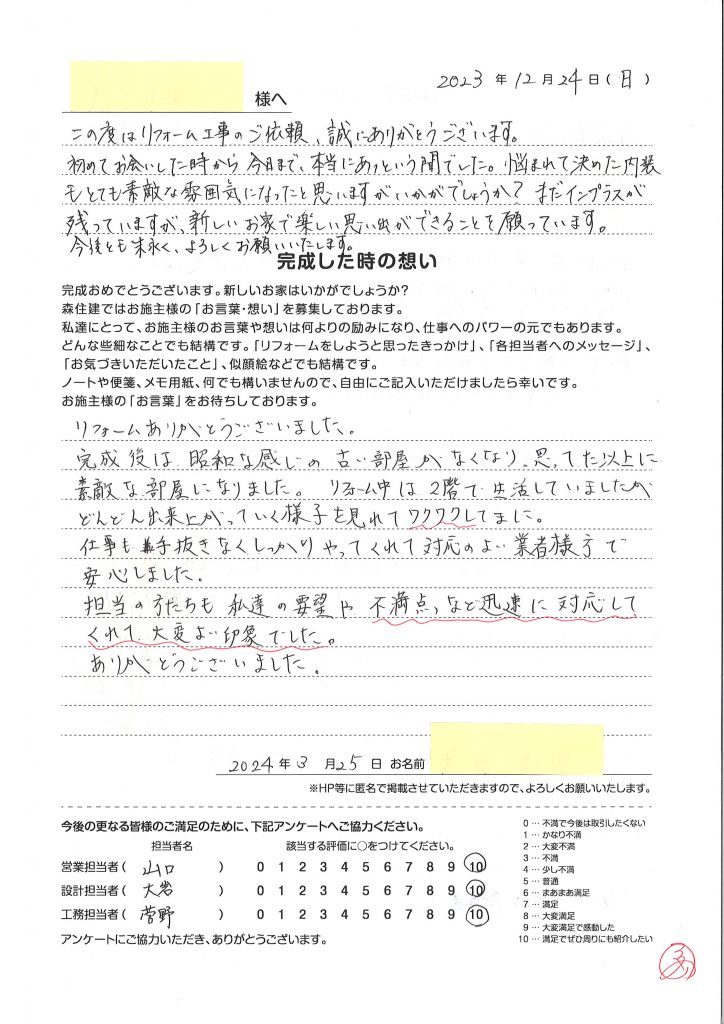 2023年12月24日(日)
様へ
この度はリフォーム工事のご依頼、誠にありがとうございます。
初めてお会いした時から今日まで、本当にあっという間でした。悩まれて決めた内装
もとても素敵な雰囲気になったと思いますがいかがでしょうか？まだインプラスが
残っていますが、新しいお家で楽しい思い出ができることを願っています。
今後とも末永く、よろしくお願いいたします。
完成した時の想い
完成おめでとうございます。新しいお家はいかがでしょうか?
森住建ではお施主様の「お言葉・想い」を募集しております。
私達にとって、お施主様のお言葉や想いは何よりの励みになり、仕事へのパワーの元でもあります。
どんな些細なことでも結構です。「リフォームをしようと思ったきっかけ」、「各担当者へのメッセージ」、
「お気づきいただいたこと」、似顔絵などでも結構です。
ノートや便箋、メモ用紙、何でも構いませんので、自由にご記入いただけましたら幸いです。
お施主様の「お言葉」をお待ちしております。
リフォームありがとうございました。
完成後は昭和な感じの古い部屋がなくなり、思ってた以上に
素敵な部屋になりました。リフォーム中は2階で生活していましたが
どんどん出来上がっていく様子を見れてワクワクしてました。
仕事も手抜きなくしっかりやってくれて対応のよい業者様方で
安心しました。
担当の方たちも私達の要望や不満点など迅速に対応して
くれて大変よい印象でした。
ありがとうございました。
2024年3月25日 お名前
※HP等に匿名で掲載させていただきますので、よろしくお願いいたします。
今後の更なる皆様のご満足のために、下記アンケートへご協力ください。
担当者名 該当する評価に○をつけてください。
営業担当者(山口) 0 1 2 3 4 5 6 7 8 9 10
設計担当者(大岩) 0 1 2 3 4 5 6 7 8 9 10
工務担当者(菅野) 0 1 2 3 4 5 6 7 8 9 10
アンケートにご協力いただき、ありがとうございます。
0…不満で今後は取引したくない
1…かなり不満
2…大変不満
3…不満
4…少し不満
5…普通
6…まあまあ満足
7…満足
8…大変満足
9…大変満足で感動した
10…満足でぜひ周りにも紹介したい